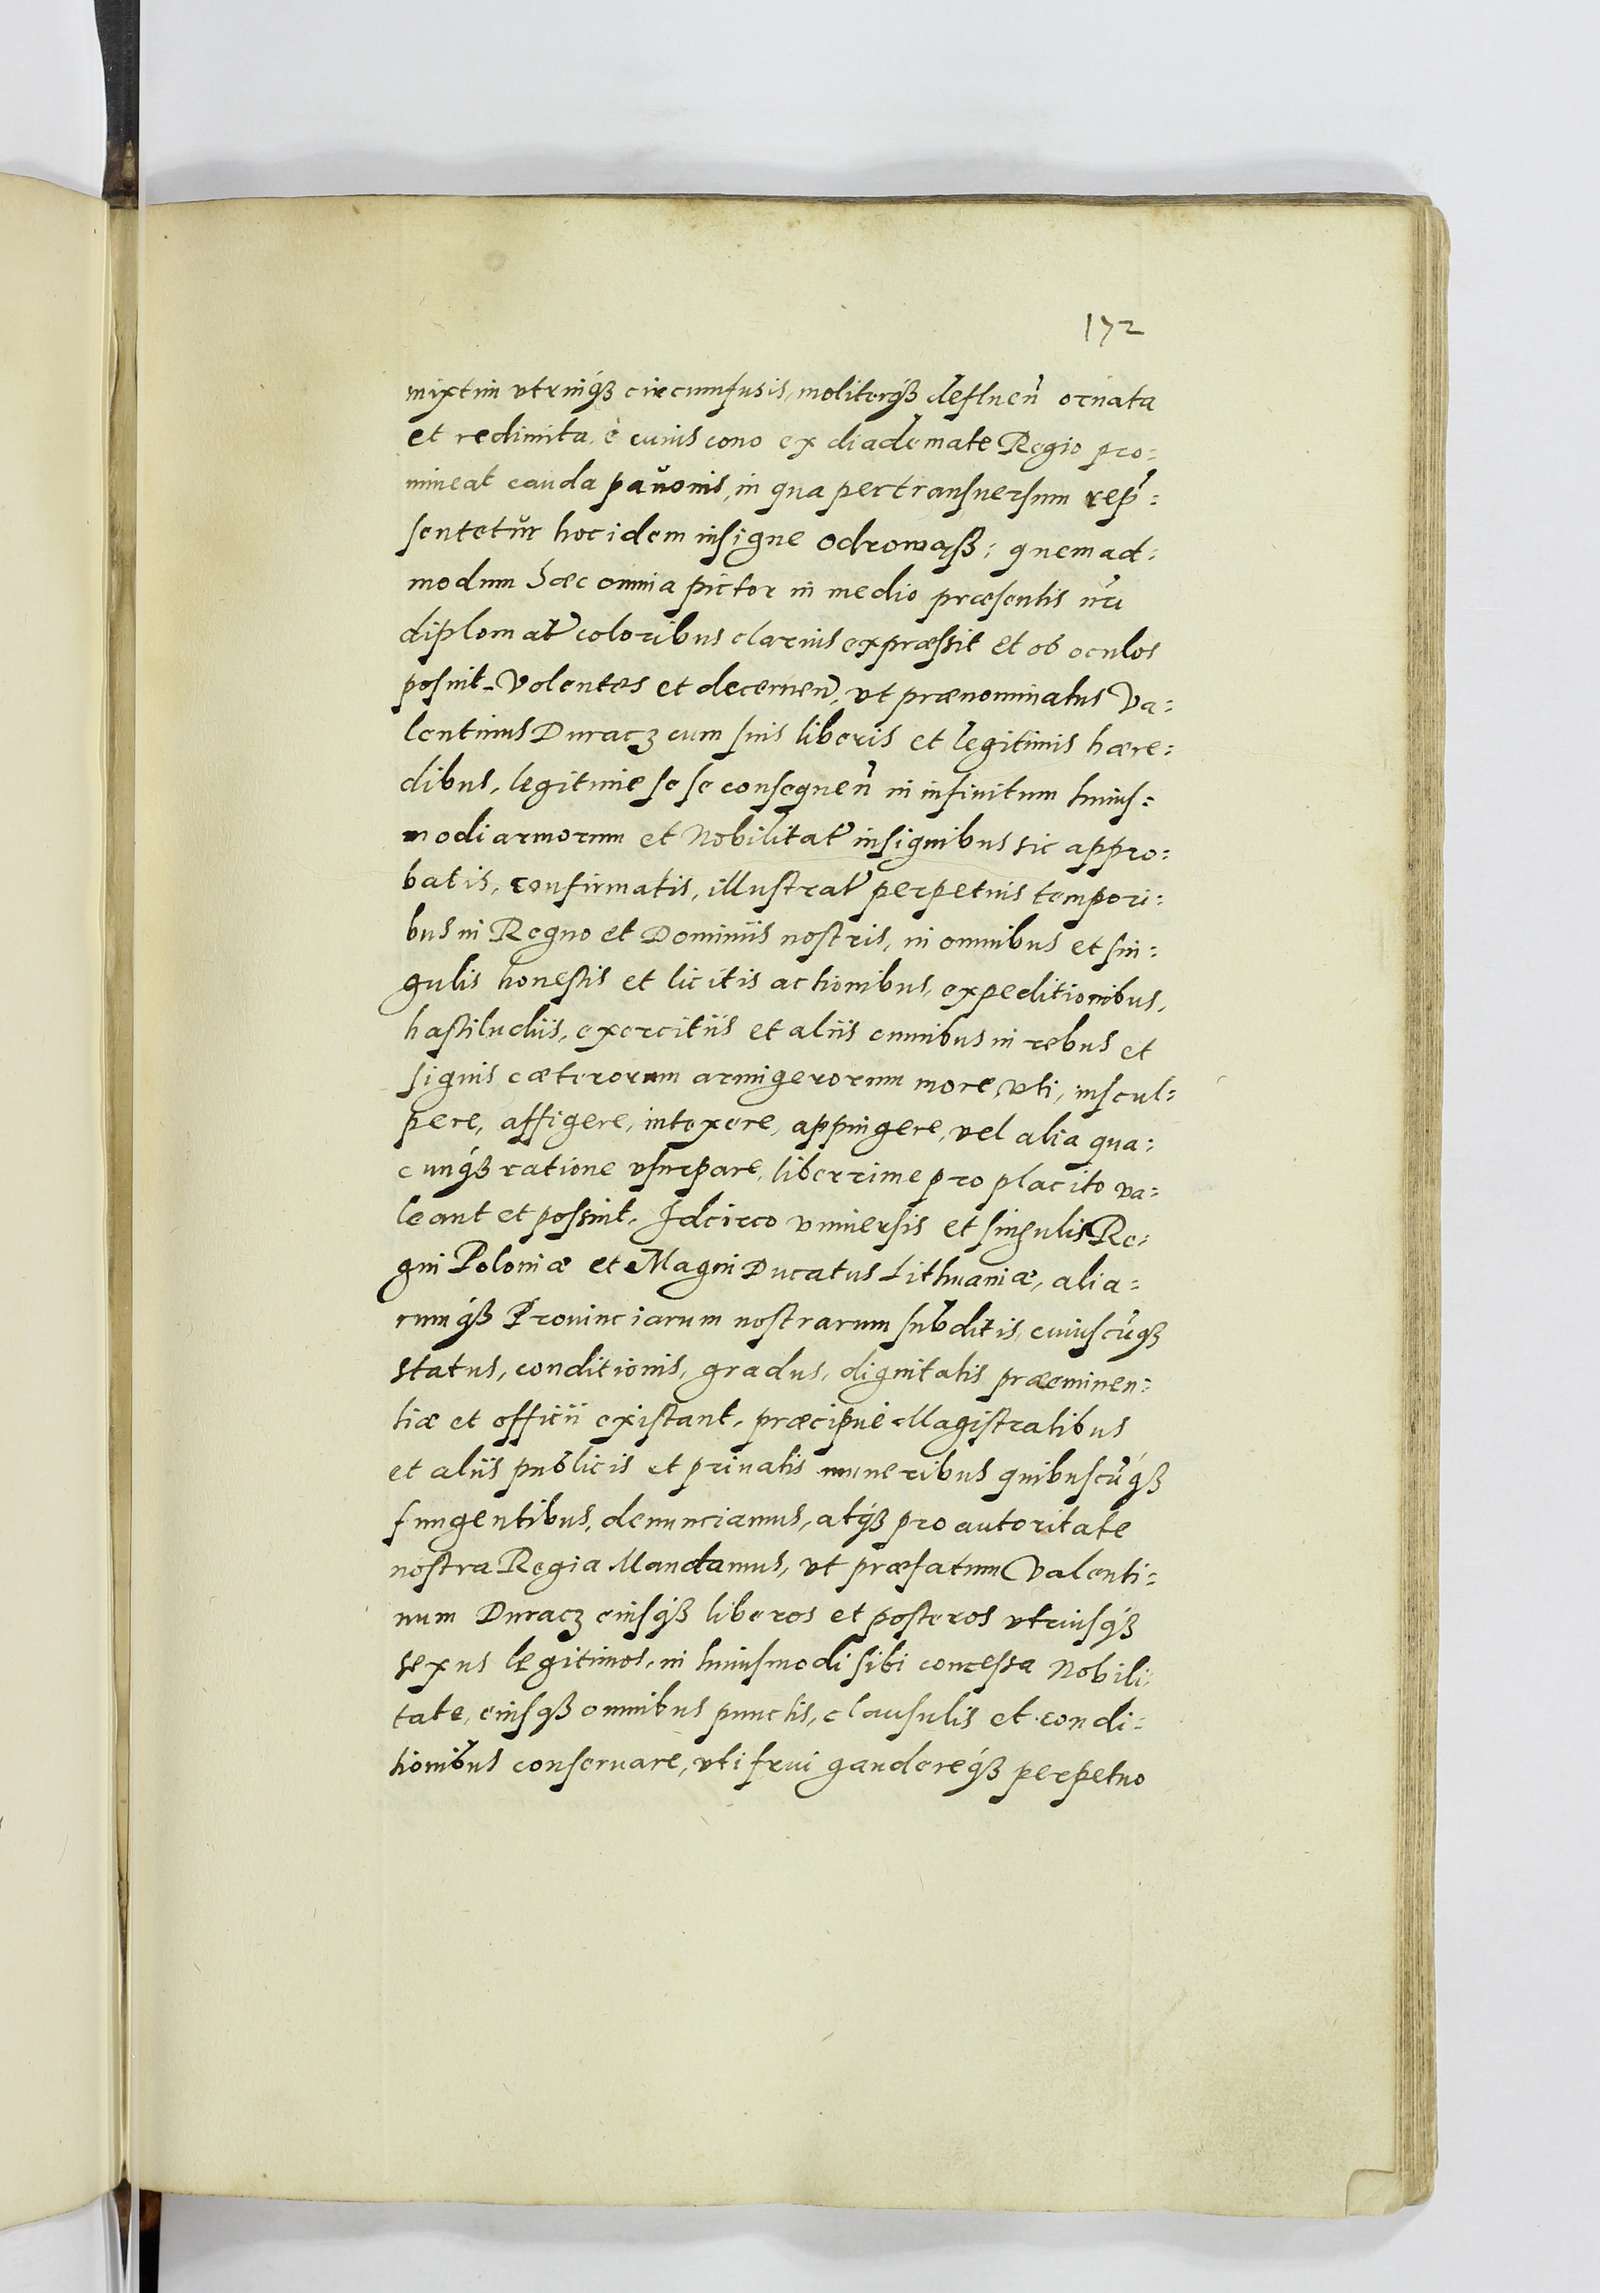 172
mixtim vtrinq́ꝫ circumfusis, moliterq́ꝫ defluen̄ ornata
et redimita. è cuius cono ex diademate Regio pro=
mineat cauda pavonis, in qua per transuersum rep̄=
sentetur hoc idem insigne Odrowąß: quemad=
modum haec omnia pictor in medio præsentis nr̄i
diplomat̄ coloribus clarius expræssit et ob oculos
posuit. Volentes et decernen̄, vt prænominatus Va=
lentinus Duracz cum suis liberis et legitimis hære=
dibus, legitime se se consequen̄ in infinitum huius=
modi armorum et Nobilitat̄ insignibus sic appro=
batis, confirmatis, illustrat̄ perpetuis tempori=
bus in Regno et Dominiis nostris, in omnibus et sin=
gulis honestis et licitis actionibus, expeditionibus,
hastiludiis, exercitiis et aliis omnibus in rebus et
signis cæterorum armigerorum more, vti, inscul=
pere, affigere, intexere, appingere, vel alia qua=
cunq́ꝫ ratione vsurpare, liberrime pro placito va=
leant et possint. Idcirco vniuersis et singulis Re=
gni Poloniæ et Magni Ducatus Lithuaniæ, alia=
rumq́ꝫ Prouinciarum nostrarum subditis, cuiuscūq́ꝫ
status, conditionis, gradus, dignitatis præeminen=
tiæ et officii existant, præcipuè Magistratibus
et aliis publicis et priuatis muneribus quibuscūq́ꝫ
fungentibus, denunciamus, atq́ꝫ pro autoritate
nostra Regia Mandamus, vt præfatum Valenti=
num Duracz eiusq́ꝫ liberos et posteros vtriusq́ꝫ
sexus legitimos, in huiusmodi sibi concessa Nobili=
tate, eiusqꝫ omnibus punctis, clausulis et condi=
tionibus conseruare, vti frui gaudereq́ꝫ perpetuo